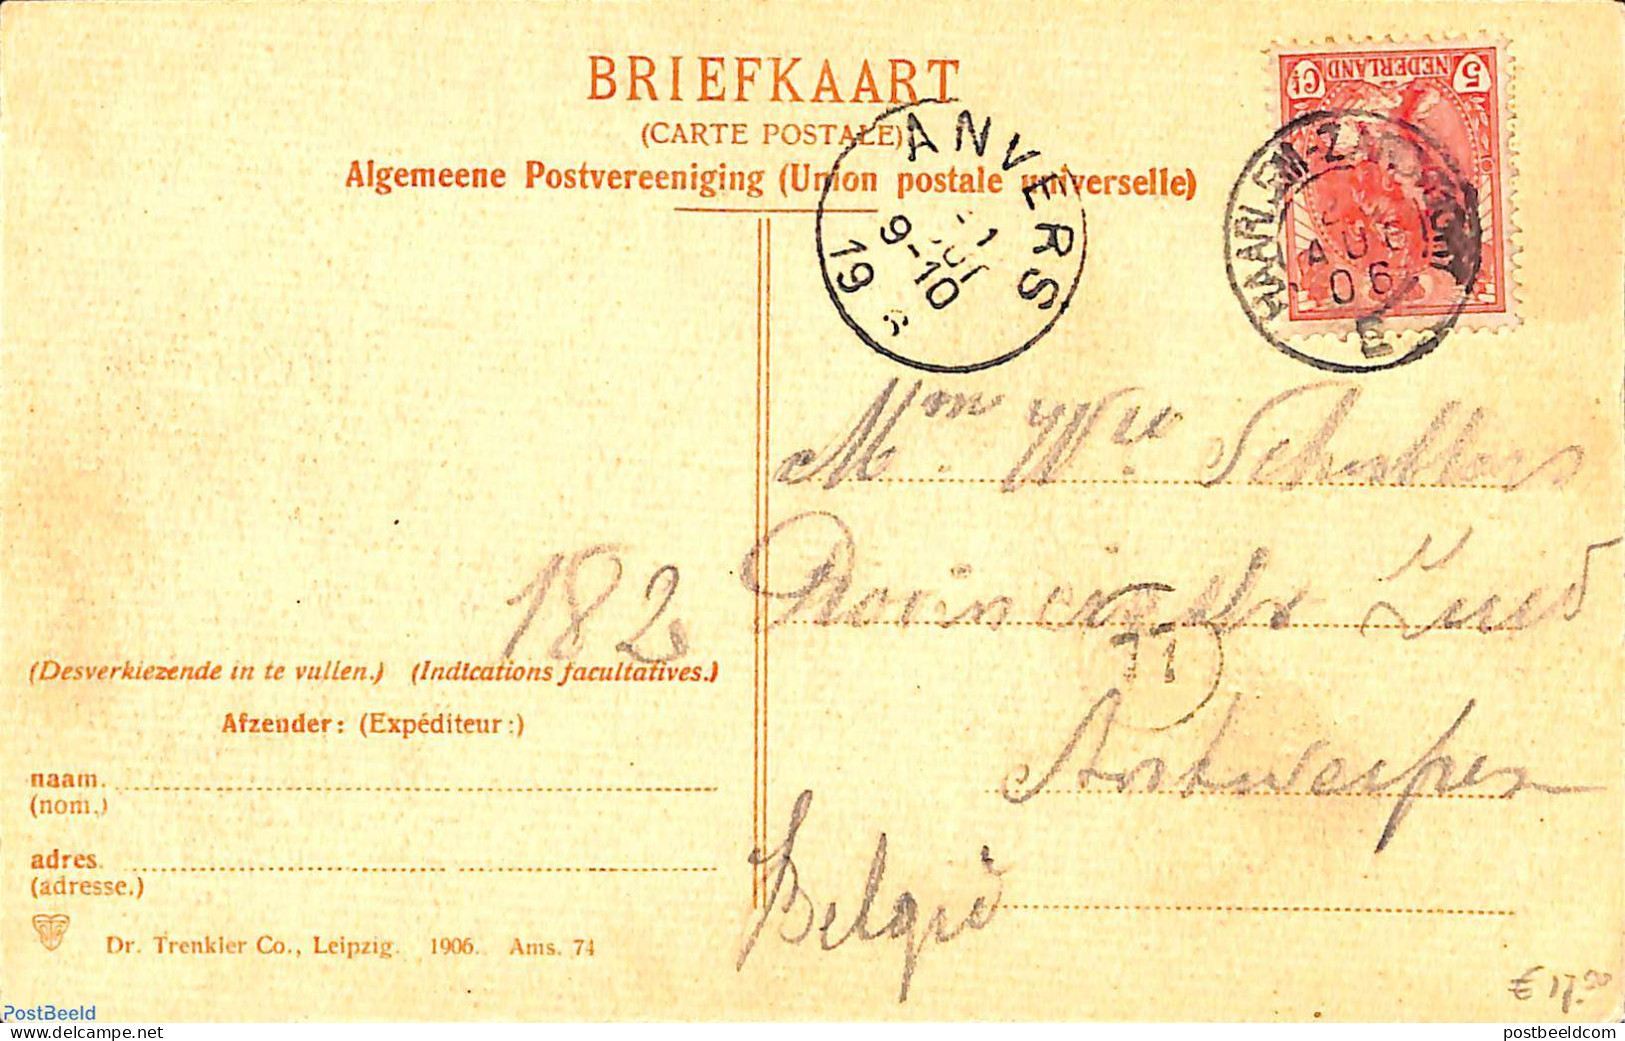 BRIEFKAART
(CARTE POSTALE)
Algemeene Postvereeniging (Union postale universelle)
5 NEDERLAND Ct
ANVERS
1
9-10
19
HAARLEM-ZANDVOORT
AUG
06
E
Mm We
Provincie Zuid
11
Antwerpen
België
182
(Desverkiezende in te vullen.) (Indications facultatives.)
Afzender: (Expéditeur:)
naam.
(nom.)
adres.
(adresse.)
Dr. Trenkler Co., Leipzig. 1906. Ams. 74
€ 17.50
PostBeeld
postbeeldcom